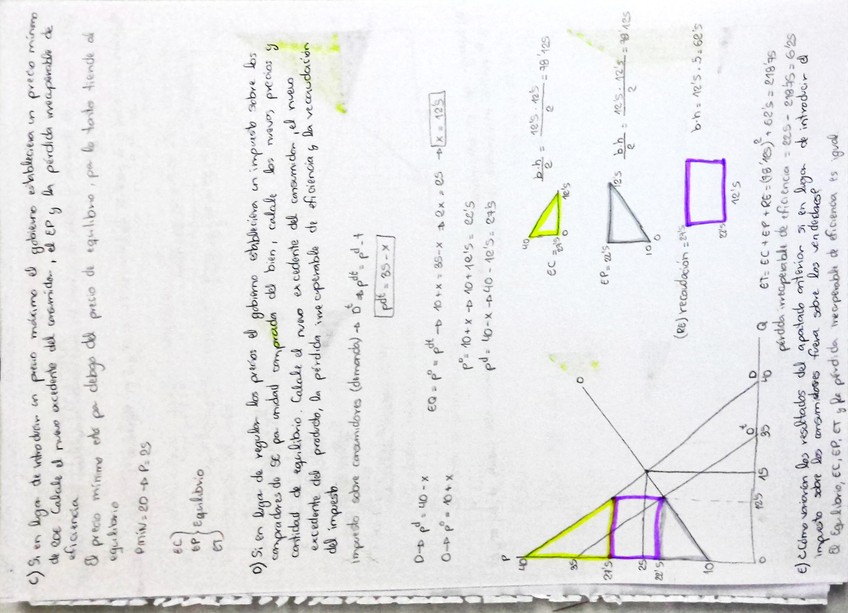 C) Si en lugar de introducir un precio máximo el gobierno estableciera un precio mínimo
de 20€ Calcule el nuevo excedente del consumidor, el EP y la pérdida irrecuperable de
eficiencia
El precio mínimo está por debajo del precio de equilibrio, por lo tanto tiende al
equilibrio
Pmin: 20 → P. 25
EC
EP } Equilibrio
ET
D) Si en lugar de regular los precios el gobierno estableciera un impuesto sobre los
compradores de 5€ por unidad comprada del bien, calcule los nuevos precios y
cantidad de equilibrio. Calcule el nuevo excedente del consumidor, el nuevo
excedente del producto, la pérdida irrecuperable de eficiencia y la recaudación
del impuesto
impuesto sobre consumidores (demanda) → Dᵗ → pᵈᵗ = pᵈ - t
pᵈᵗ = 35 - x
D → pᵈ = 40 - x
O → p⁰ = 10 + x
EQ = p⁰ = pᵈᵗ → 10 + x = 35 - x → 2x = 25 → x = 12'5
p⁰ = 10 + x → 10 + 12'5 = 22'5
pᵈ = 40 - x → 40 - 12'5 = 27'5
P
40
35
27'5
25
22'5
10
0
12'5
15
35
40
Q
O
D
Dᵗ
EC = 40 27'5 0 12'5 b·h/2 = 12'5 · 12'5/2 = 78'125
EP = 22'5 10 0 12'5 b·h/2 = 12'5 · 12'5/2 = 78'125
(RE) recaudación = 27'5 22'5 12'5 b·h = 12'5 · 5 = 62'5
ET = EC + EP + RE = (78'125)² + 62'5 = 218'75
pérdida irrecuperable de eficiencia = 225 - 218'75 = 6'25
E) ¿Cómo variarían los resultados del apartado anterior si en lugar de introducir el
impuesto sobre los consumidores fuera sobre los vendedores?
El Equilibrio, EC, EP, ET y la pérdida irrecuperable de eficiencia es igual